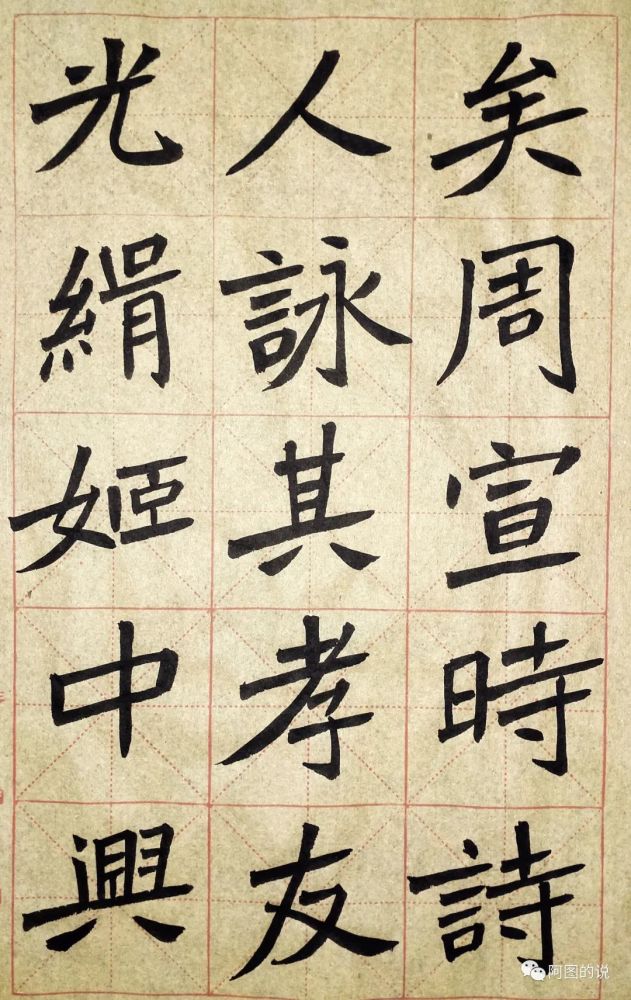 矣周宣時詩
人詠其孝友
光緝姬中興
阿图的说